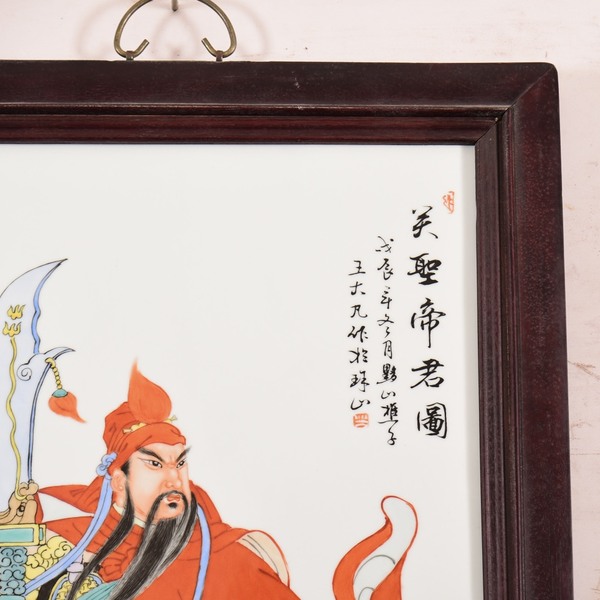 关聖帝君圖
戊辰年冬月黟山樵子
王大凡作於珠山